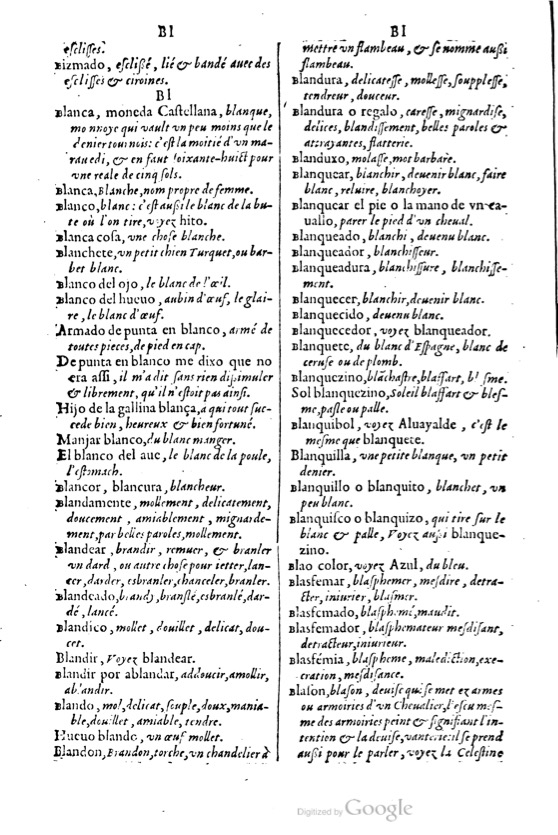 BI
esclisses.
Bizmado, esclißé, lié & bandé auec des
esclisses & ciroines.
BI
Blanca, moneda Castellana, blanque,
monnoye qui vault vn peu moins que le
denier tournois: c'est la moitié d'vn ma-
rauedi, & en faut soixante-huict pour
vne reale de cinq sols.
Blanca, Blanche, nom propre de femme.
Blanco, blanc: c'est außi le blanc de la bu-
te où l'on tire, voyez hito.
Blanca cosa, vne chose blanche.
Blanchete, vn petit chien Turquet, ou bar-
bet blanc.
Blanco del ojo, le blanc de l'œil.
Blanco del hueuo, aubin d'œuf, le glai-
re, le blanc d'œuf.
Armado de punta en blanco, armé de
toutes pieces, de pied en cap.
De punta en blanco me dixo que no
era assi, il m'a dit sans rien dissimuler
& librement, qu'il n'estoit pas ainsi.
Hijo de la gallina blanca, a qui tout suc-
cede bien, heureux & bien fortuné.
Manjar blanco, du blanc manger.
El blanco del aue, le blanc de la poule,
l'estomach.
Blancor, blancura, blancheur.
Blandamente, mollement, delicatement,
doucement, amiablement, mignarde-
ment, par belles paroles, mollement.
Blandear, brandir, remuer, & branler
vn dard, ou autre chose pour ietter, lan-
cer, darder, esbranler, chanceler, branler.
Blandeado, brandy, branslé, esbranlé, dar-
dé, lancé.
Blandico, mollet, douillet, delicat, dou-
cet.
Blandir, Voyez blandear.
Blandir por ablandar, addoucir, amollir,
ablandir.
Blando, mol, delicat, souple, doux, mania-
ble, douillet, amiable, tendre.
Hueuo blando, vn œuf mollet.
Blandon, Brandon, torche, vn chandelier à
BI
mettre vn flambeau, & se nomme außi
flambeau.
Blandura, delicatesse, mollesse, souplesse,
tendreur, douceur.
Blandura o regalo, caresse, mignardise,
delices, blandissement, belles paroles &
attrayantes, flatterie.
Blanduxo, molasse, mot barbare.
Blanquear, blanchir, deuenir blanc, faire
blanc, reluire, blanchoyer.
Blanquear el pie o la mano de vn ca-
uallo, parer le pied d'vn cheual.
Blanqueado, blanchi, deuenu blanc.
Blanqueador, blanchisseur.
Blanqueadura, blanchissure, blanchisse-
ment.
Blanquecer, blanchir, deuenir blanc.
Blanquecido, deuenu blanc.
Blanquecedor, voyez blanqueador.
Blanquete, du blanc d'Espagne, blanc de
ceruse ou de plomb.
Blanquezino, blãchastre, blaffart, blesme.
Sol blanquezino, Soleil blaffart & bles-
me, pasle ou palle.
Blanquibol, voyez Aluayalde, c'est le
mesme que blanquete.
Blanquilla, vne petite blanque, vn petit
denier.
Blanquillo o blanquito, blanchet, vn
peu blanc.
Blanquisco o blanquizo, qui tire sur le
blanc & palle, Voyez außi blanque-
zino.
Blao color, voyez Azul, du bleu.
Blasfemar, blasphemer, mesdire, detra-
cter, iniurier, blasmer.
Blasfemado, blasphemé, maudit.
Blasfemador, blasphemateur mesdisant,
detracteur, iniurieur.
Blasfémia, blaspheme, malediction, exe-
cration, mesdisance.
Blason, blason, deuise qui se met ez armes
ou armoiries d'vn Cheualier, l'escu mes-
me des armoiries peint & signifiant l'in-
tention & la deuise, il se prend
außi pour le parler, voyez la Celestine
Digitized by Google